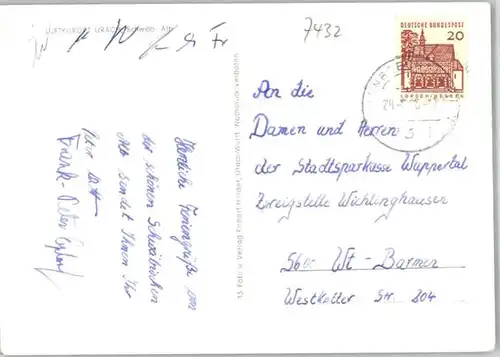 LUFTKURORT URACH Schwäb. Alb
7432
DEUTSCHE BUNDESPOST
20
LORSCH/HESSEN
24.
An die
Damen und Herren
der Stadtsparkasse Wuppertal
Zweigstelle Wichlinghausen
5600 Wt-Barmen
Westkotter Str. 204
Herzliche Feriengrüße von
der schönen Schwäbischen
Alb sendet Ihnen Ihr
Frank-Peter
Foto u. Verlag Nachdruck verboten